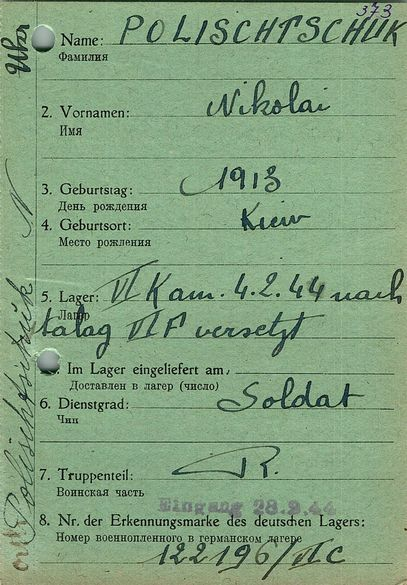 373
Ukr
Name: POLISCHTSCHUK
Фамилия
2. Vornamen: Nikolai
Имя
3. Geburtstag: 1913
День рождения
4. Geburtsort: Kiew
Место рожления
5. Lager: VI K am. 4.2.44 nach
Лагер
talag VI F versetzt
Im Lager eingeliefert am
Доставлен в лагер (число)
6. Dienstgrad: Soldat
Чин
7. Truppenteil: R.
Воинская часть
Eingang 28.9.44
8. Nr. der Erkennungsmarke des deutschen Lagers:
Номер военнопленного в германском лагере
122196/VI C
Polischtschuk N